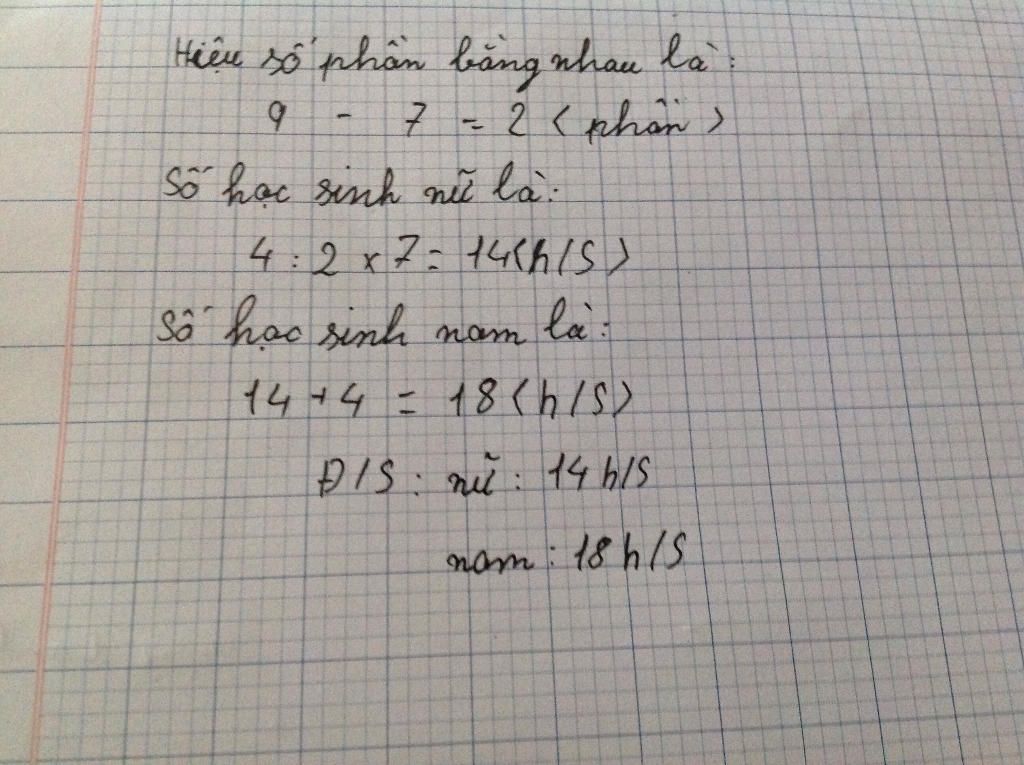 Hiệu số phần bằng nhau là:
9 - 7 = 2 < phần >
Số học sinh nữ là:
4 : 2 x 7 = 14 < h/S >
Số học sinh nam là:
14 + 4 = 18 < h/S >
Đ/S : nữ : 14 h/S
nam : 18 h/S